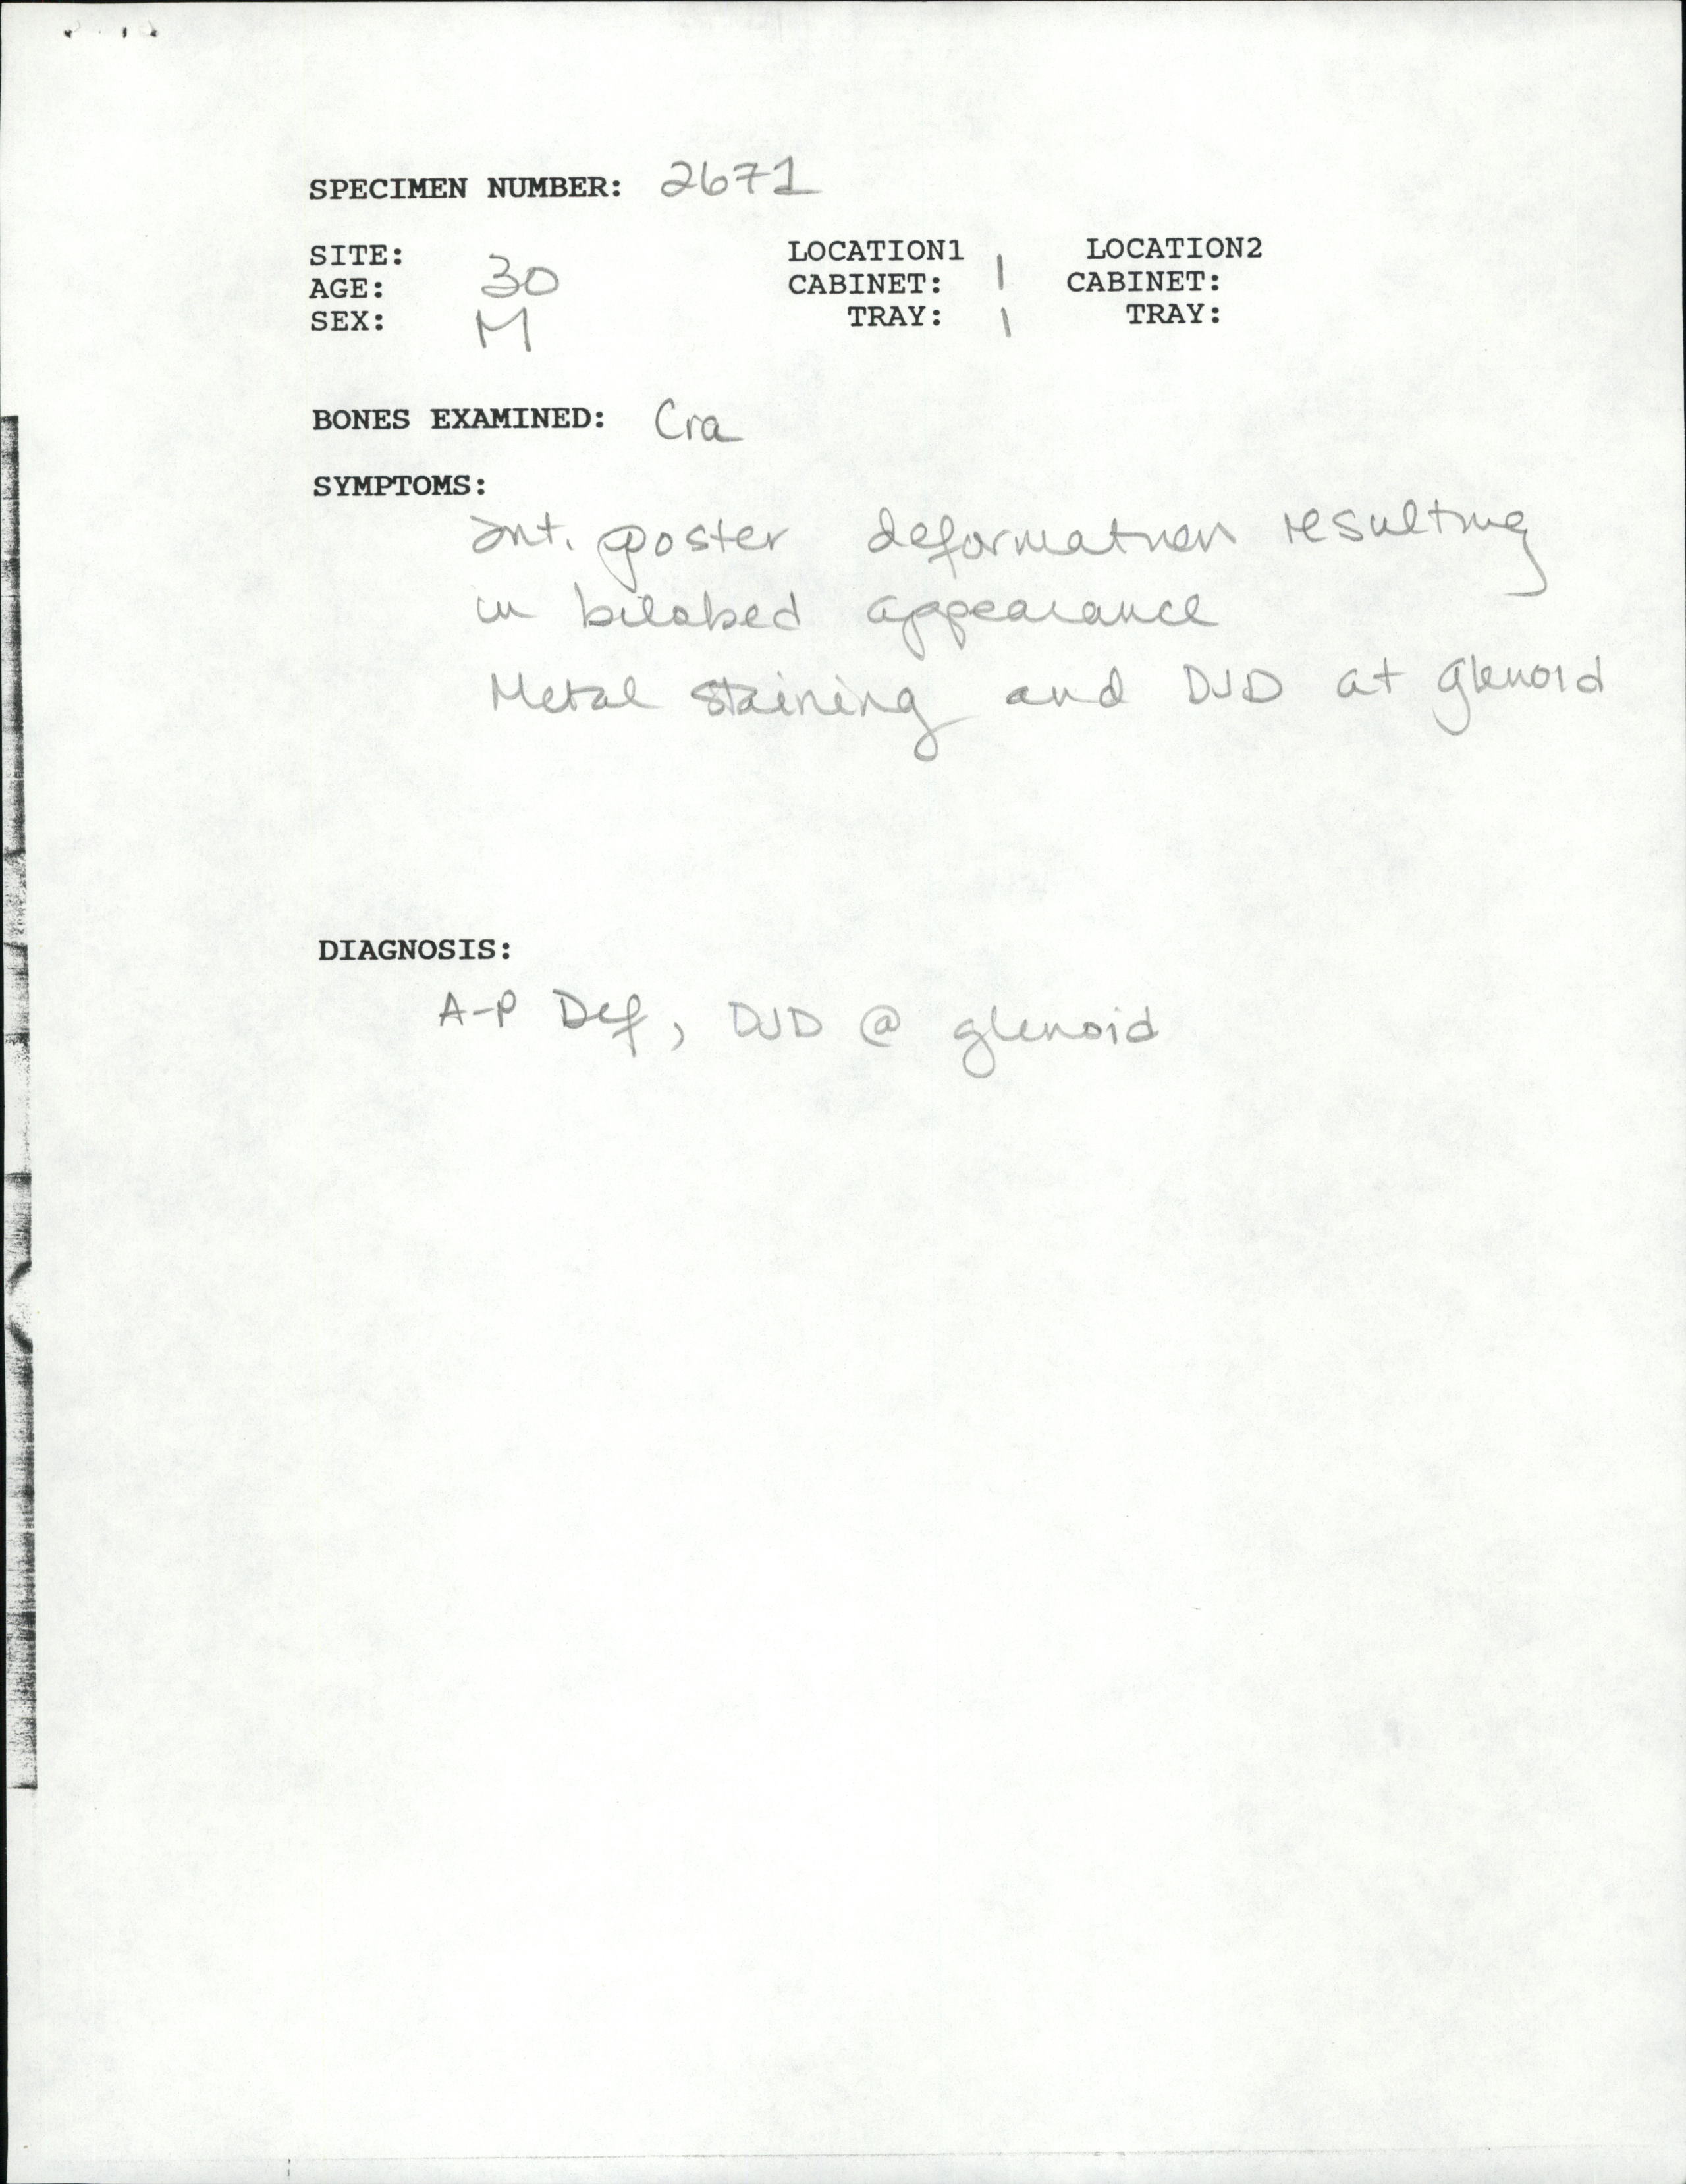 SPECIMEN NUMBER: 2671
SITE:
AGE: 30
SEX: M
LOCATION1
CABINET: 1
TRAY: 1
LOCATION2
CABINET:
TRAY:
BONES EXAMINED: Cra
SYMPTOMS:
ant. poster deformation resulting
in bilobed appearance
Metal staining and DJD at glenoid
DIAGNOSIS:
A-P Def, DJD @ glenoid